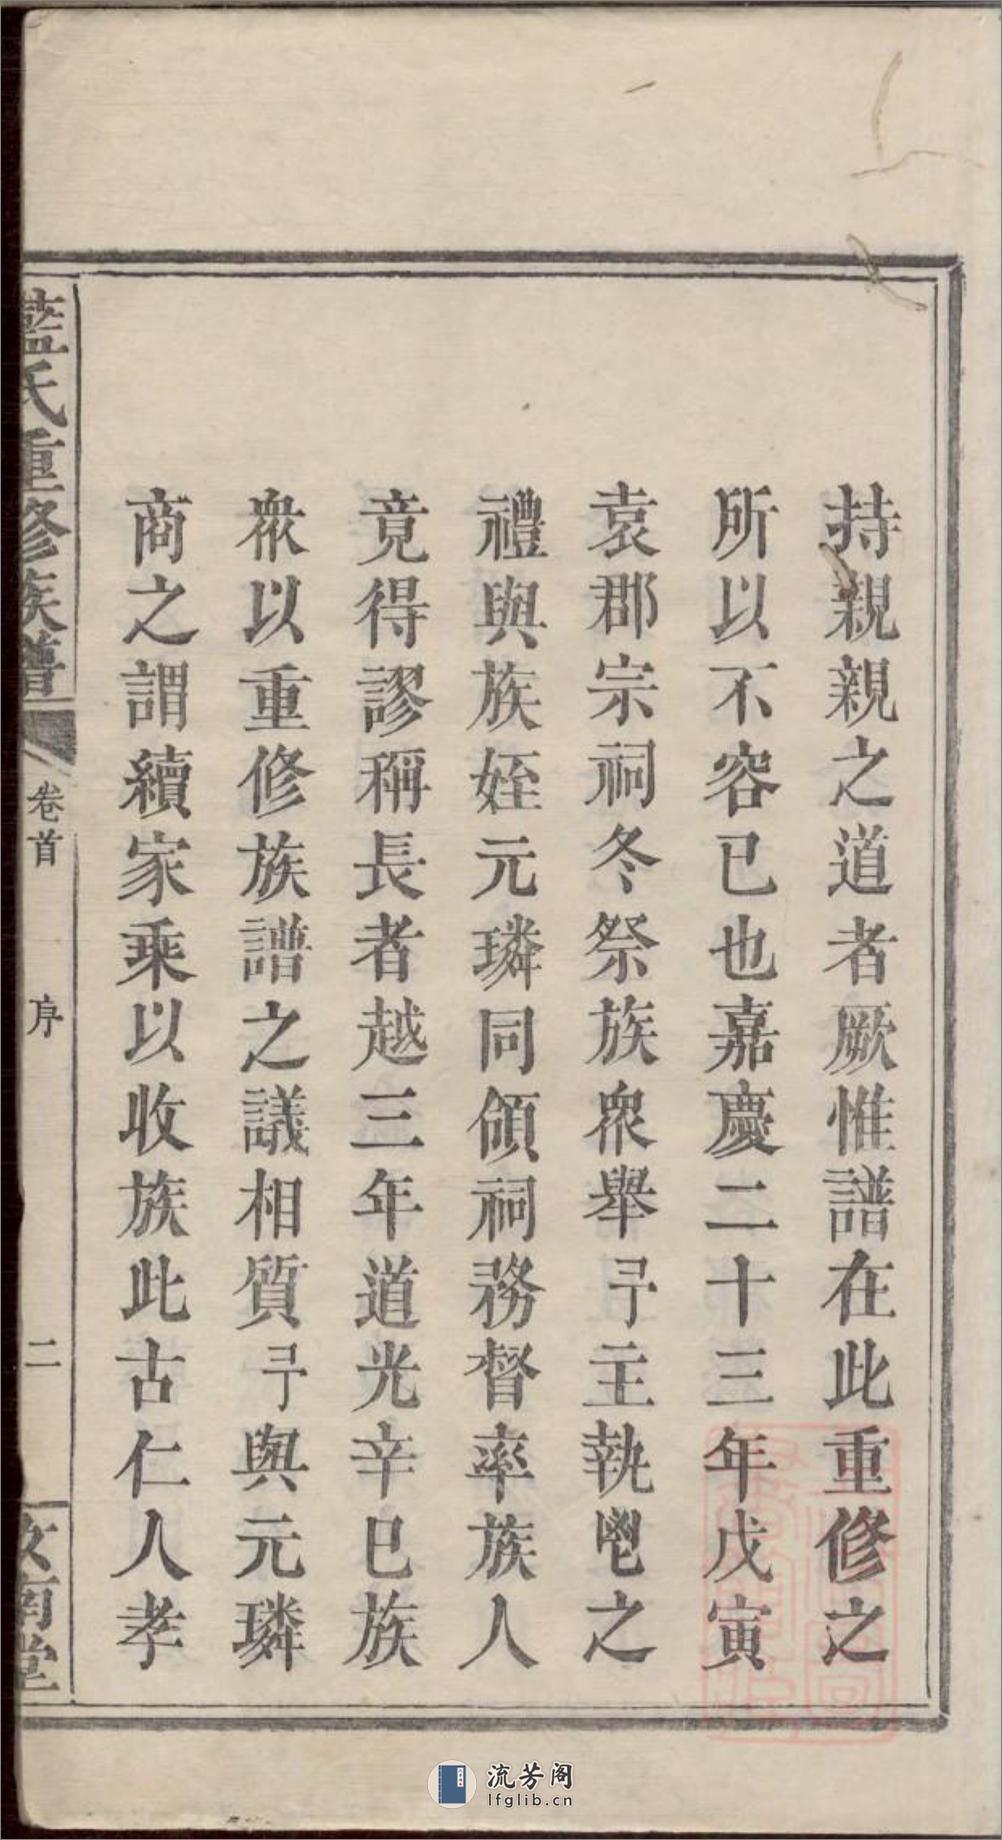 持親親之道者厥惟譜在此重修之
所以不容已也嘉慶二十三年戊寅
袁郡宗祠冬祭族衆舉予主執鬯之
禮與族姪元璘同領祠務督率族人
竟得謬稱長者越三年道光辛巳族
衆以重修族譜之議相質予與元璘
商之謂續家乘以收族此古仁人孝
藍氏重修族譜 卷首 序 二
流芳阁
lfglib.cn